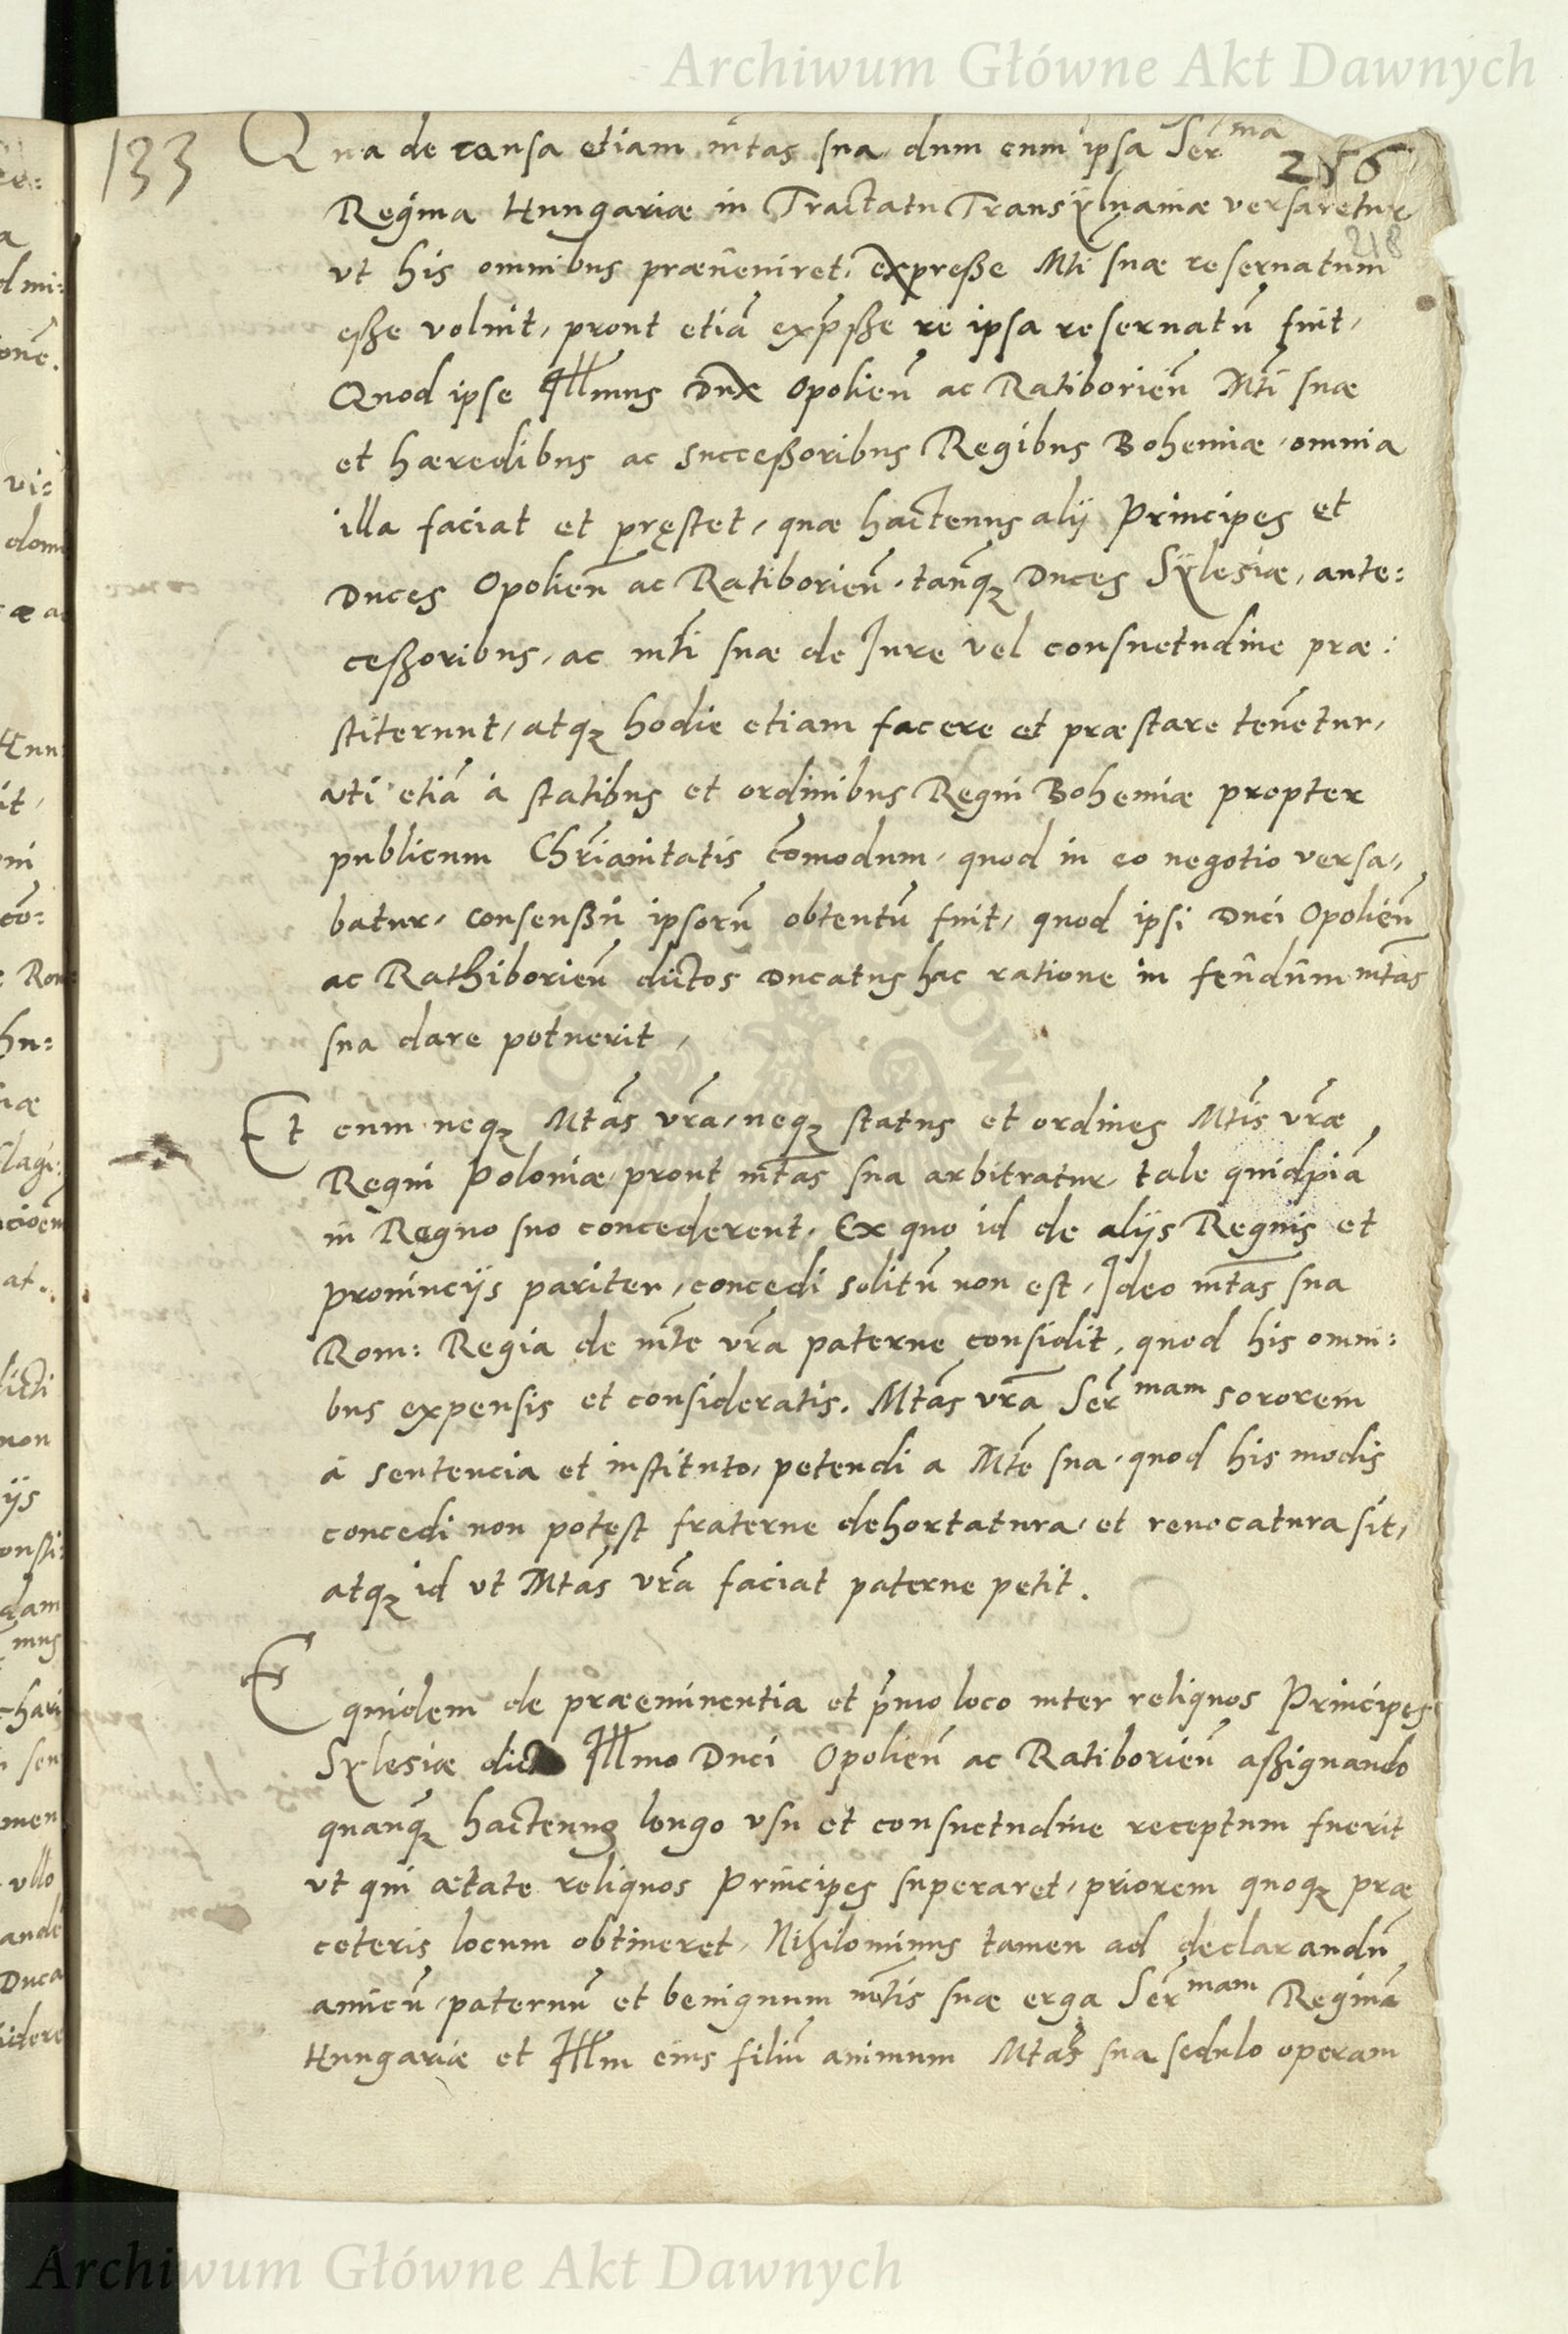 Archiwum Główne Akt Dawnych
133
Qua de causa etiam mtas sua dum cum ipsa Ser^ma
256
Regina Hungariæ in Tractatu Transÿluaniæ versaretur
218
vt his omnibus præueniret, expreße Mti suæ reseruatum
eße voluit, prout etiã exp̃ße re ipsa reseruatũ fuit,
Quod ipse Illmus Dux Opolień ac Ratiborień Mti suæ
et hæredibus ac succeßoribus Regibus Bohemiæ omnia
illa faciat et pręstet, quæ hactenus alij Principes et
Duces Opolień ac Ratiborień, tanq̃ Duces Sÿlesiæ, ante:
ceßoribus, ac mti suæ de Jure vel consuetudine præ:
stiterunt, atq̨ hodie etiam facere et præstare teñetur,
uti etiã à statibus et ordinibus Regni Bohemiæ propter
publicum Chrĩanitatis cõmodum, quod in eo negotio versa,,
batur, consensũ ipsorũ obtentũ fuit, quod ipsi Duci Opolień
ac Rathiborień dictos Ducatus hac ratione in feudum mtas
sua dare potuerit,
Et cum neq̨ Mtas vrã, neq̨ status et ordines Mtis vræ
Regni Poloniæ prout mtas sua arbitratur tale quidpiã
in Regno suo concederent, Ex quo id de alijs Regnis et
prouincijs pariter, concedi solitũ non est, Ideo mtas sua
Rom: Regia de mte vrã paterne confidit, quod his omni:
bus expensis et consideratis. Mtas vrã Ser^mam sororem
à sentencia et instituto, petendi a Mte sua, quod his modis
concedi non potest fraterne dehortatura, et reuocatura sit,
atq̨ id vt Mtas vrã faciat paterne petit.
Equidem de præeminentia et p̃mo loco inter reliquos Principes
Sÿlesiæ Illmo Duci Opolień ac Ratiborień aßignando
quanq̃ hactenus longo vsu et consuetudine receptum fuerit
vt qui ætate reliquos Principes superaret, priorem quoq̨ præ
ceteris locum obtineret, Nihilominus tamen ad declarandũ
amicũ, paternũ et benignum mtis suæ erga Ser^mam Reginã
Hungariæ et Illm eius filiũ animum Mtas sua sedulo operam
Archiwum Główne Akt Dawnych